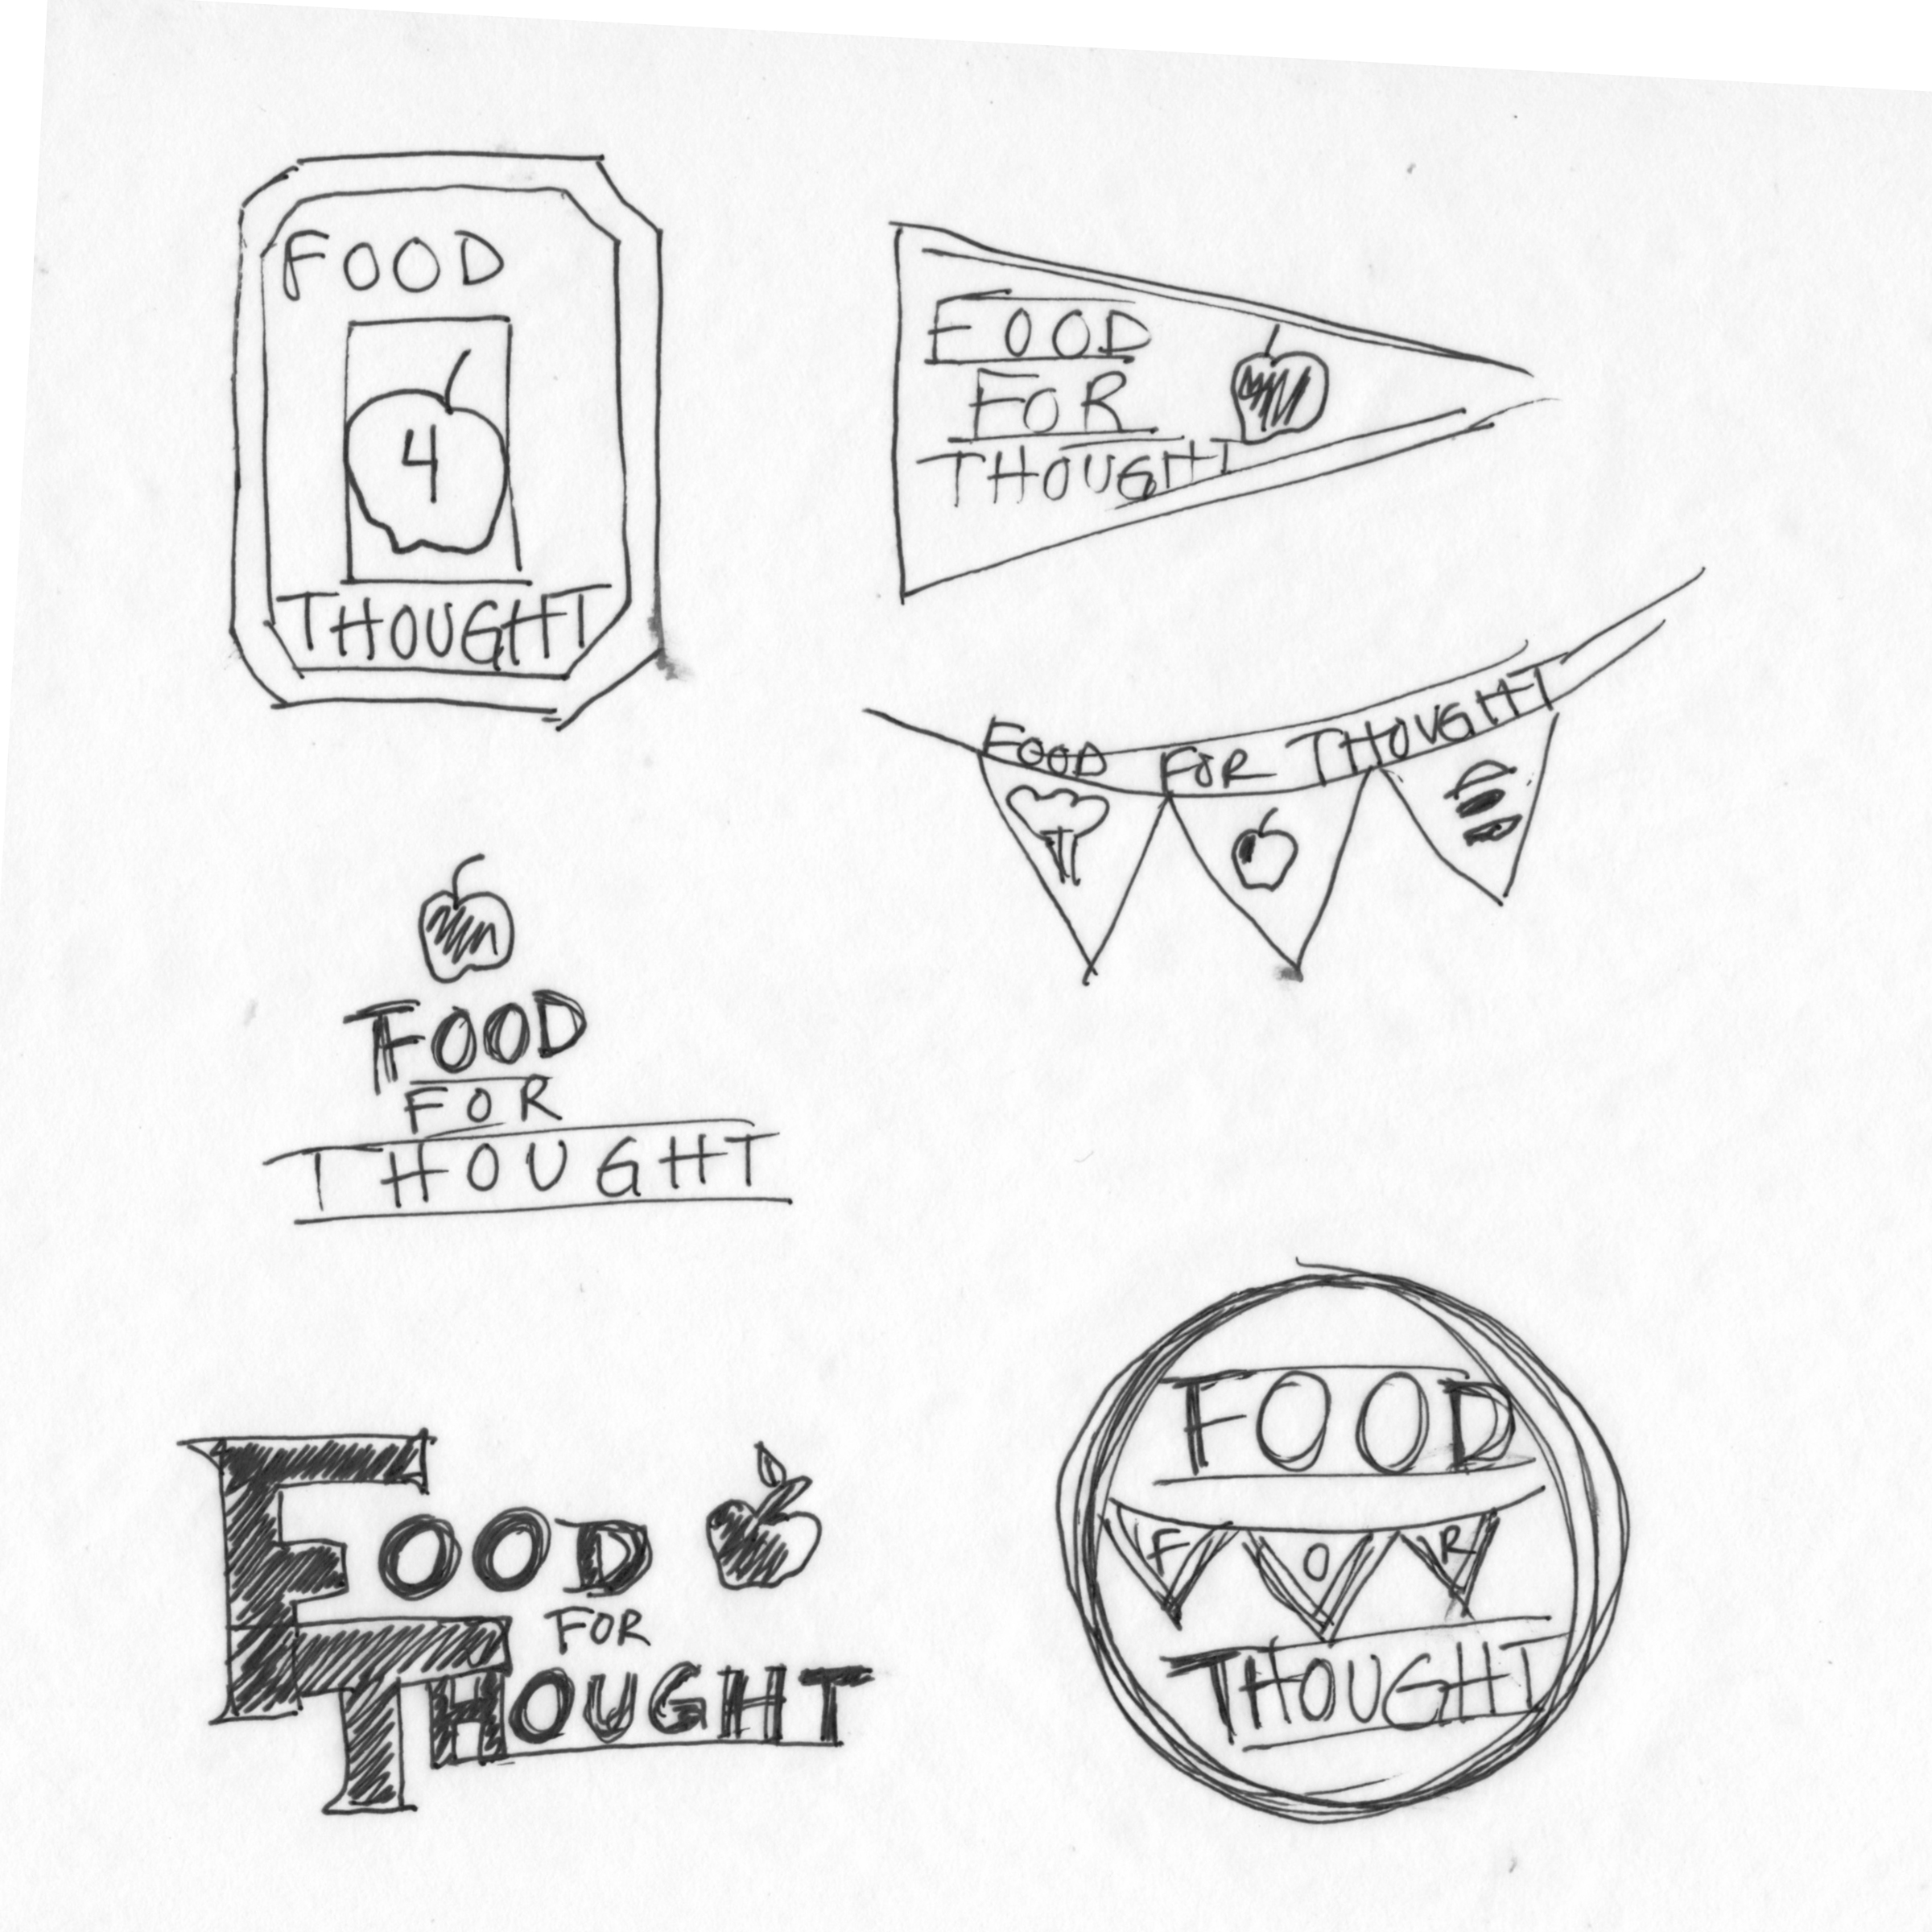 FOOD
4
THOUGHT
FOOD
FOR
THOUGHT
FOOD FOR THOUGHT
FOOD
FOR
THOUGHT
FOOD
FOR
THOUGHT
FOOD
FOR
THOUGHT